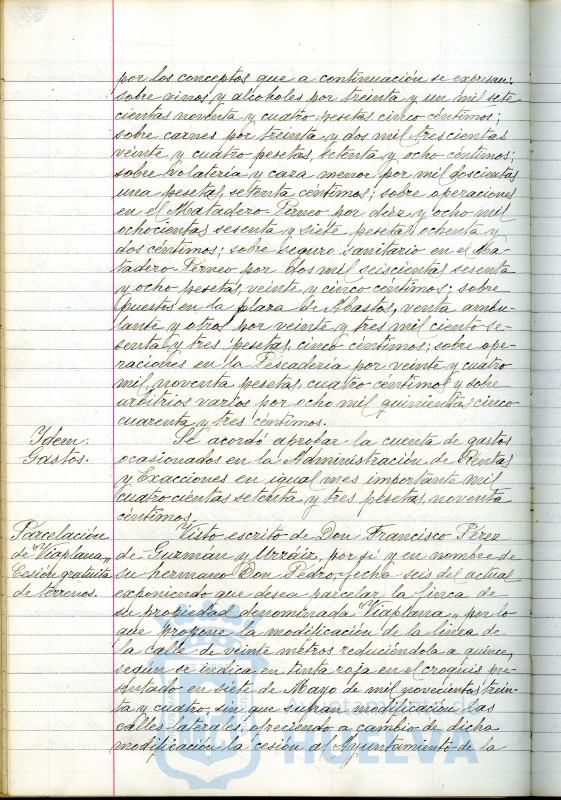 por los conceptos que a continuación se expresan:
sobre vinos y alcoholes por treinta y un mil sete-
cientas noventa y cuatro pesetas cinco céntimos;
sobre carnes por treinta y dos mil trescientas
veinte y cuatro pesetas, setenta y ocho céntimos;
sobre volateria y caza menor por mil doscientas
una pesetas, setenta céntimos; sobre operaciones
en el Matadero-Perneo por diez y ocho mil
ochocientas sesenta y siete pesetas ochenta y
dos céntimos; sobre seguro sanitario en el Ma-
tadero-Perneo por dos mil seiscientas sesenta
y ocho pesetas, veinte y cinco céntimos; sobre
puestos en la plaza de Abastos, venta ambu-
lante y otros por veinte y tres mil ciento se-
senta y tres pesetas, cinco céntimos; sobre ope-
raciones en la Pescadería por veinte y cuatro
mil noventa pesetas, cuatro céntimos y sobre
arbitrios varios por ocho mil quinientas cinco
cuarenta y tres céntimos.
Idem. Se acordó aprobar la cuenta de gastos
Gastos. ocasionados en la Administración de Rentas
y Exacciones en igual mes importante mil
cuatrocientas setenta y tres pesetas, noventa
céntimos.
Parcelación Visto escrito de Don Francisco Pérez
de "Viaplana" de Guzmán y Urzáiz, por sí y en nombre de
Cesión gratuita su hermano Don Pedro, fecha seis del actual
de terrenos. exponiendo que desea parcelar la finca de
su propiedad denominada "Viaplana" por lo
que propone la modificación de la línea de
la calle de veinte metros reduciéndola a quince,
según se indica en tinta roja en el croquis pre-
sentado en siete de Mayo de mil novecientos trein-
ta y cuatro, sin que sufran modificación las
calles laterales, ofreciendo a cambio de dicha
modificación la cesión al Ayuntamiento de la
HUELVA